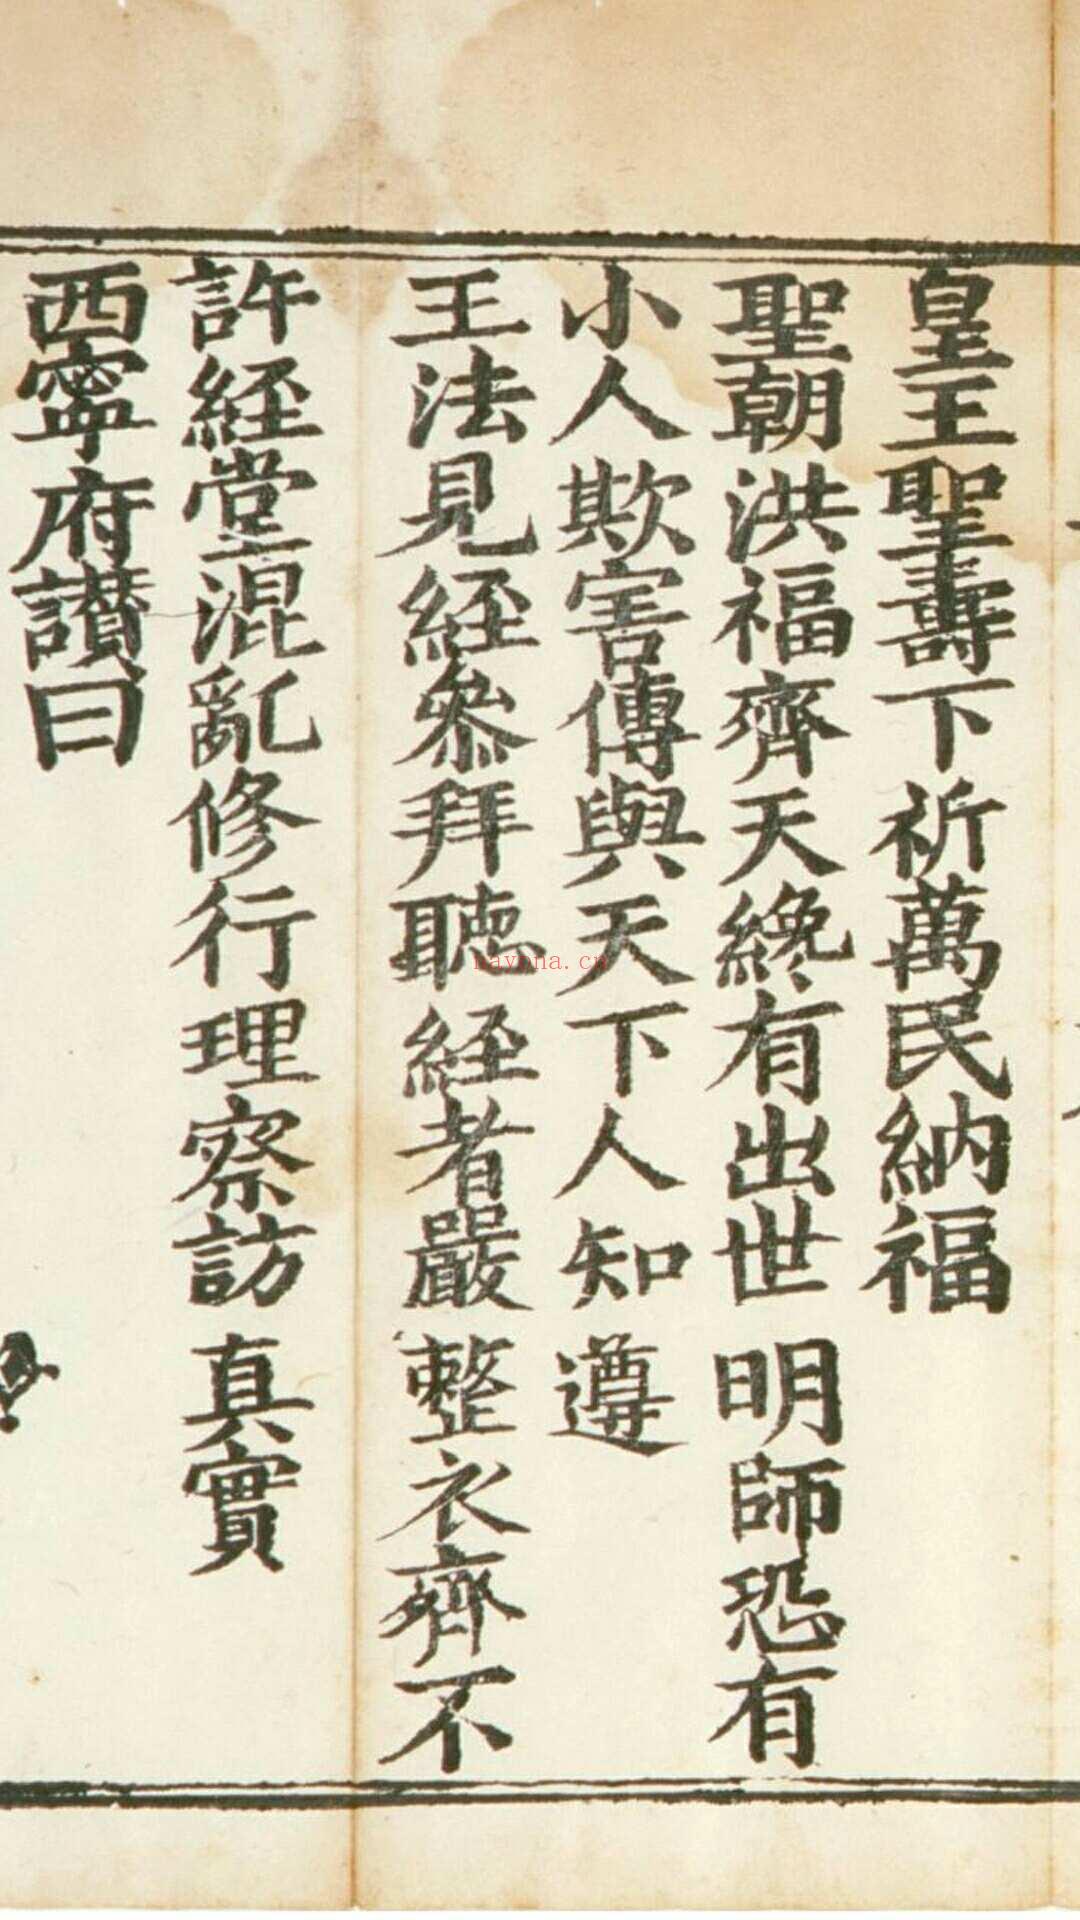 皇王聖壽下祈萬民納福
聖朝洪福齊天終有出世明師恐有
小人欺害傳與天下人知遵
王法見経叅拜聽経者嚴整衣齊不
許経堂混亂修行理察訪真實
西寧府讃曰
nayona.cn